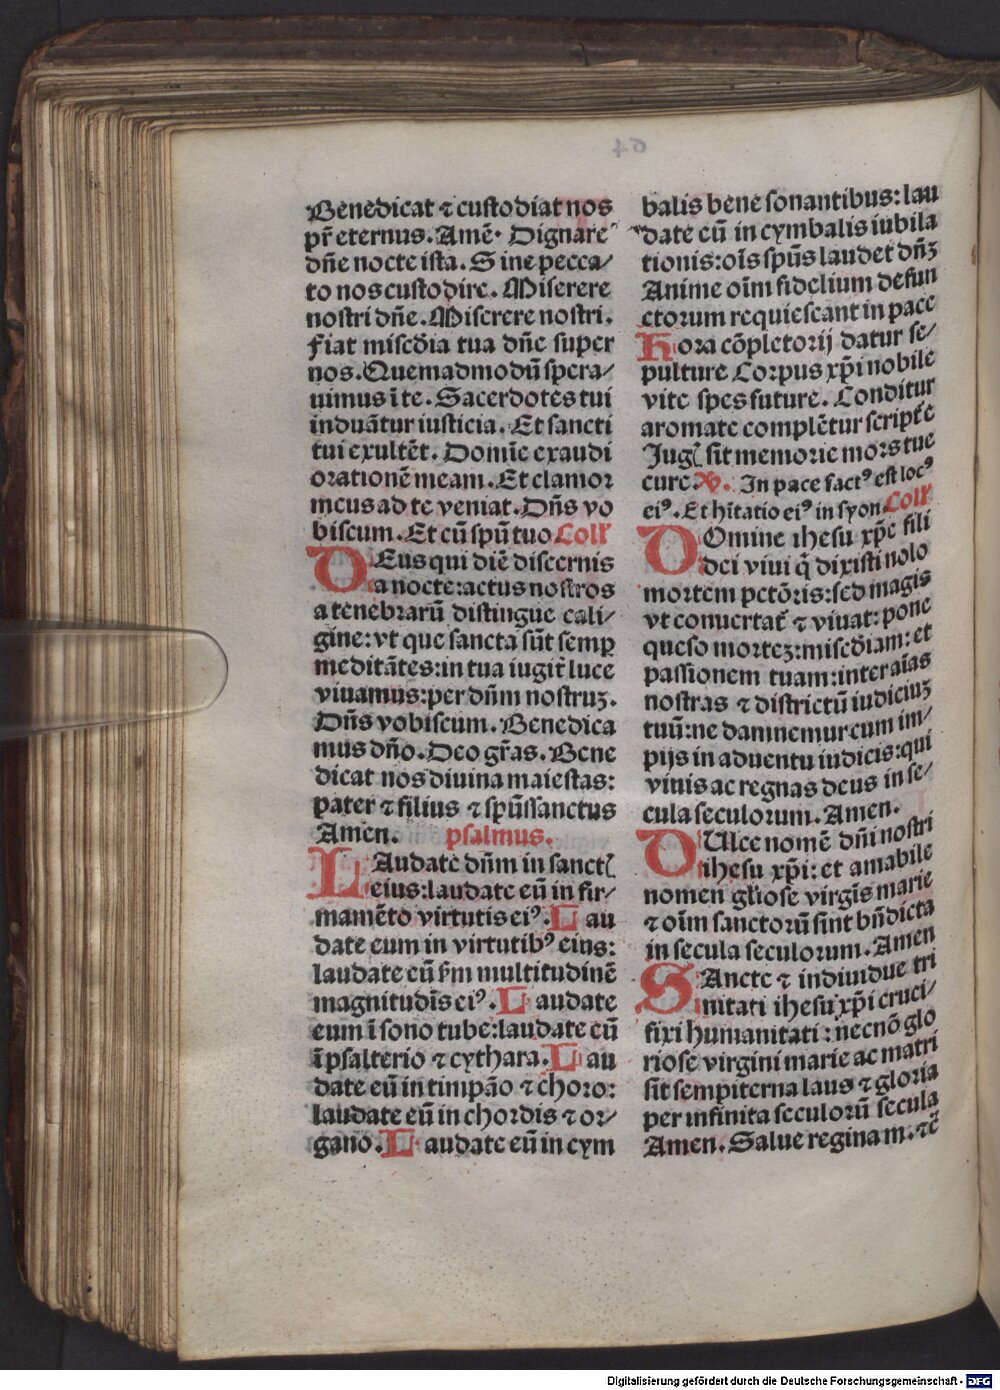 Benedicat ⁊ custodiat nos
pr̃ eternus. Amẽ. Dignare
dñe nocte ista. Sine pecca/
to nos custodire. Miserere
nostri dñe. Miserere nostri.
Fiat misc̃dia tua dñe super
nos. Quemadmodũ spera/
uimus ĩ te. Sacerdotes tui
induãtur iusticia. Et sancti
tui exultẽt. Domĩe exaudi
orationẽ meam. Et clamor
meus ad te veniat. Dñs vo
biscum. Et cũ spũ tuo Coll̃
DEus qui diẽ discernis
a nocte: actus nostros
a tenebrarũ distingue cali/
gine: vt que sancta sũt semꝑ
meditãtes: in tua iugit̃ luce
viuamus: per dñm nostruꝫ.
Dñs vobiscum. Benedica
mus dño. Deo gr̃as. Bene
dicat nos diuina maiestas:
pater ⁊ filius ⁊ spũssanctus
Amen. psalmus.
LAudate dñm in sanctꝭ
eius: laudate eũ in fir/
mamẽto virtutis eiꝰ. Lau
date eum in virtutibꝰ eius:
laudate eũ ẜm multitudinẽ
magnitudĩs eiꝰ. Laudate
eum ĩ sono tube: laudate eũ
ĩ psalterio ⁊ cythara. Lau
date eũ in timpão ⁊ choro:
laudate eũ in chordis ⁊ or/
gano. Laudate eũ in cym
balis bene sonantibus: lau
date cũ in cymbalis iubila
tionis: oĩs spũs laudet dñꝫ
Anime oĩm fidelium defun
ctorum requiescant in pace
Hora cõpletorij datur se/
pulture Corpus xp̃i nobile
vite spes future. Conditur
aromate complẽtur scripte
Jugꝭ sit memorie mors tue
cure. ℣. In pace factꝰ est locꝰ
eiꝰ. Et hĩtatio eiꝰ in syon Coll̃
DOmine ihesu xp̃e fili
dei viui q̃ dixisti nolo
mortem pctõris: sed magis
vt conuertat̃ ⁊ viuat: pone
queso morteꝫ: misc̃diam: et
passionem tuam: inter aĩas
nostras ⁊ districtũ iudiciuꝫ
tuũ: ne damnemur cum im/
pijs in aduentu iudicis: qui
viuis ac regnas deus in se/
cula seculorum. Amen.
DUlce nomẽ dñi nostri
ihesu xp̃i: et amabile
nomen gl̃iose virgĩs marie
⁊ oĩm sanctorũ sint bñdicta
in secula seculorum. Amen
SAncte ⁊ indiuidue tri
nitati ihesu xp̃i cruci/
fixi humanitati: necnõ glo
riose virgini marie ac matri
sit sempiterna laus ⁊ gloria
per infinita seculorũ secula
Amen. Salue regina m. ⁊c̃
Digitalisierung gefördert durch die Deutsche Forschungsgemeinschaft - DFG